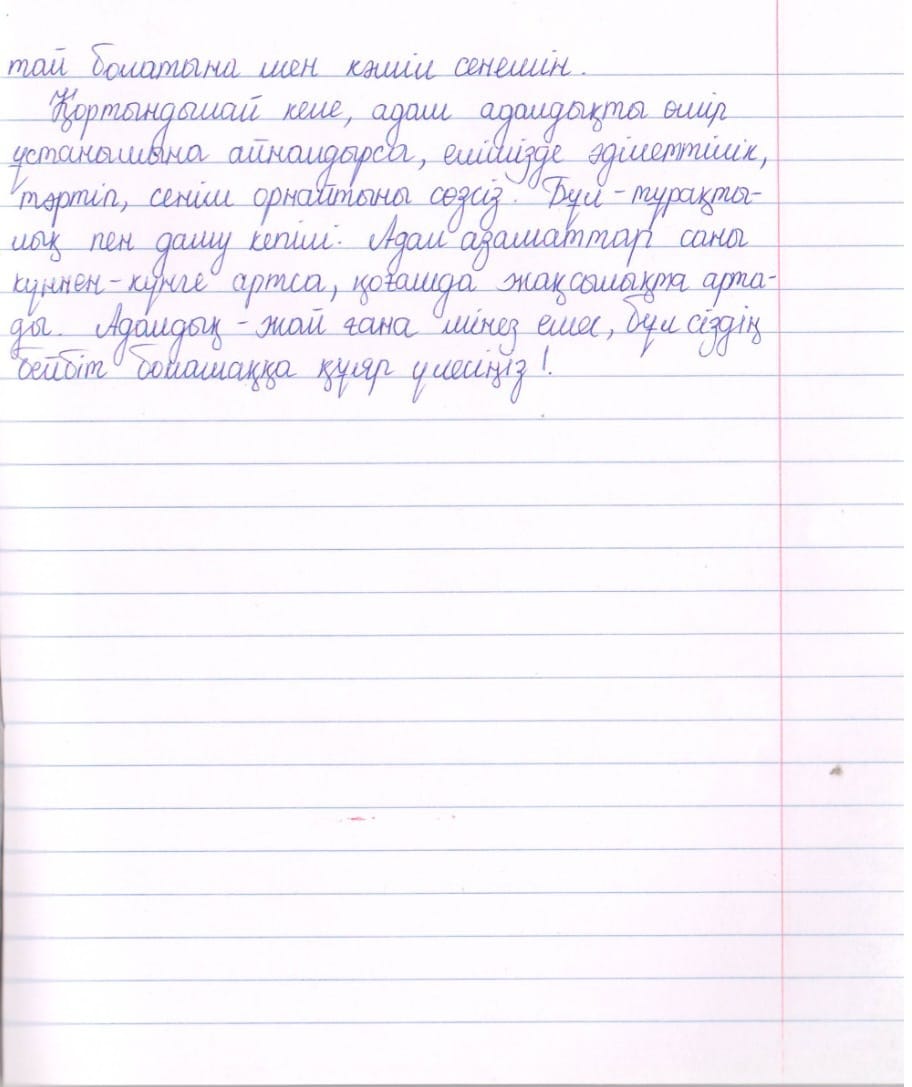 тай болатына мен кәміл сенемін.
Қортындылай келе, адам адалдықты өмір
ұстанымына айналдырса, елімізде әділеттілік,
тәртіп, сенім орнайтыны сөзсіз. Бұл - тұрақты-
лық пен даму кепілі. Адал азаматтар саны
күннен-күнге артса, қоғамда жақсылықта арта-
ды. Адалдық - жай ғана мінез емес, бұл сіздің
бейбіт болашаққа құяр үлесіңіз!